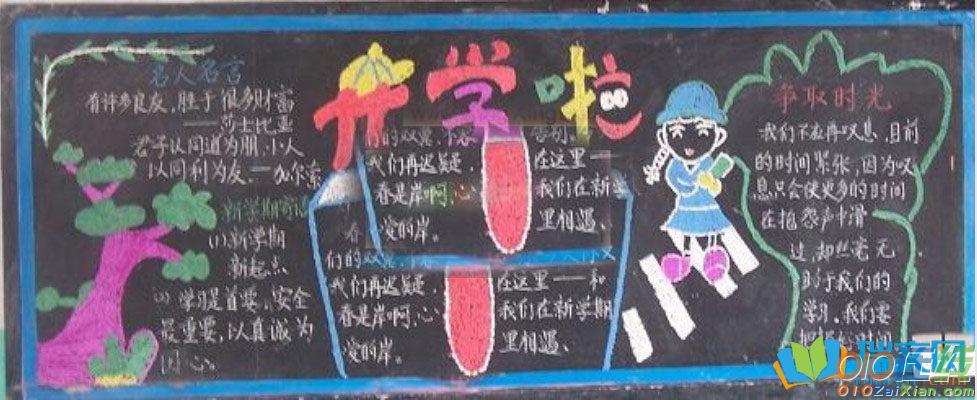 开学啦
名人名言
有许多良友，胜于很多财富
——莎士比亚
君子以同道为朋，小人
以同利为友。——
新学期寄语
(1)新学期
新起点
(2)学习是首要，安全
最重要，以真诚为
圆心。
们的双翼，不
我们再迟疑，
春是岸啊，心
爱的岸。
告别，
在这里——
我们在新学
里相遇、
春
们的双翼、
我们再迟疑，
春是岸啊，心
爱的岸。
在这里——和
我们在新学期
里相遇、
争取时光
我们不应再叹息，目前
的时间紧张，因为叹
息只会使更多的时间
在抱怨声中滑
过，却丝毫无
助于我们的
学习。我们要
010ZaiXian.com